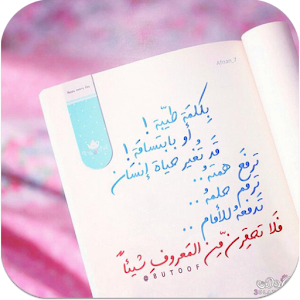 Afnan_T
بِكلمَةٍ طيّبة !
أو بابتسَامَة !
قَد تُغيّر حياة إنسَان
ترفَع همّته ..
ترمّم حلمهُ ..
تَدفعهُ للأمام ..
فَلَا تحقِرن مِّن المَعروفِ شَيئاً
@BUTOOF